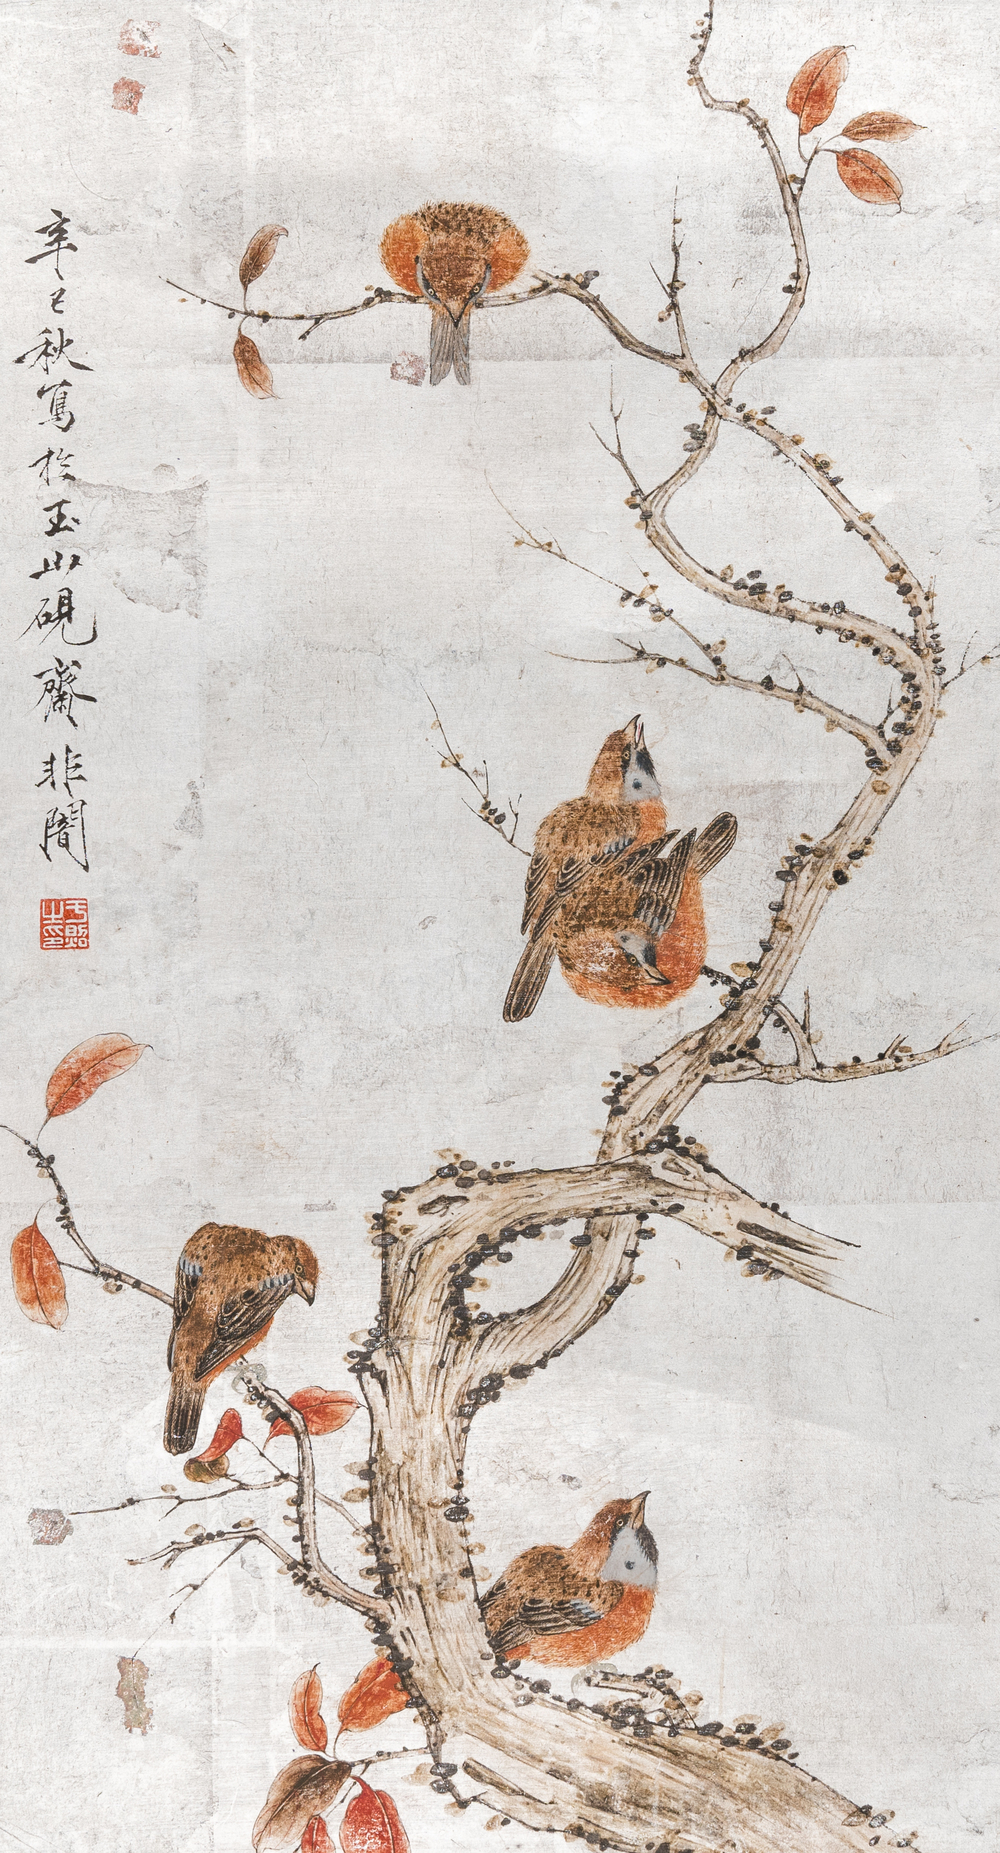 辛巳秋寫於玉山硯齋非闇
于照之印